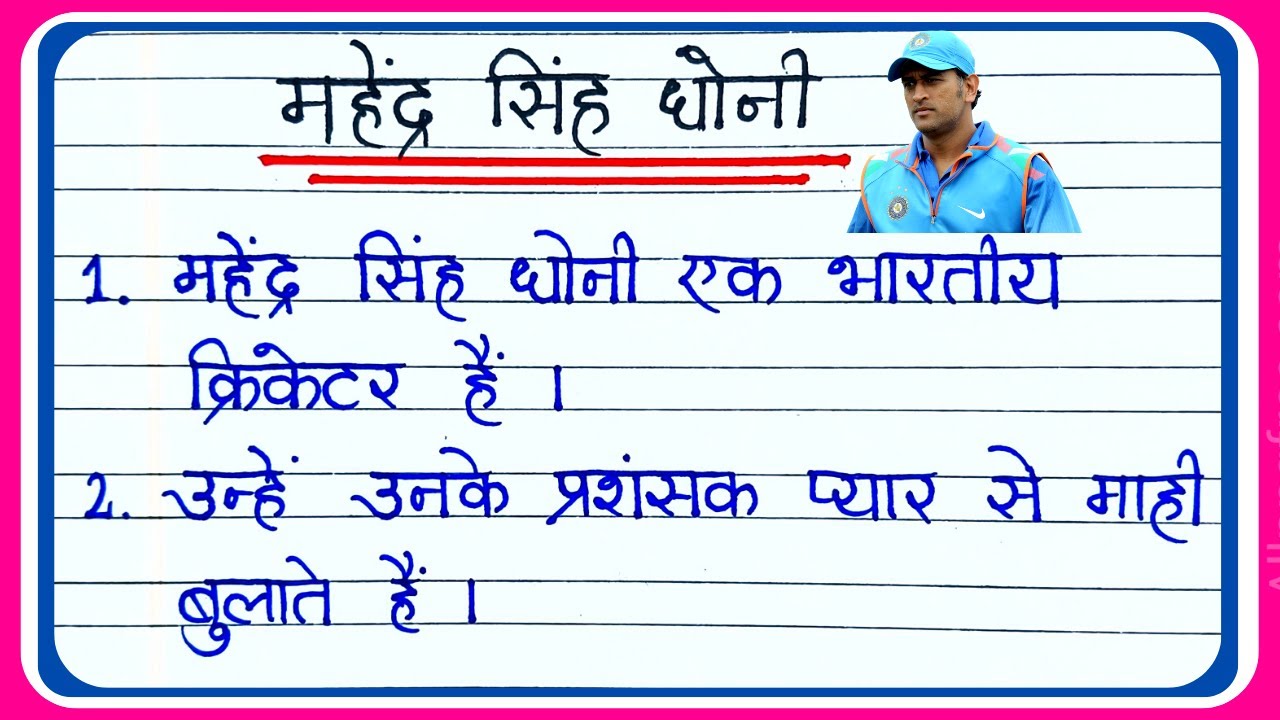 महेंद्र सिंह धोनी
1. महेंद्र सिंह धोनी एक भारतीय
क्रिकेटर हैं ।
2. उन्हें उनके प्रशंसक प्यार से माही
बुलाते हैं ।